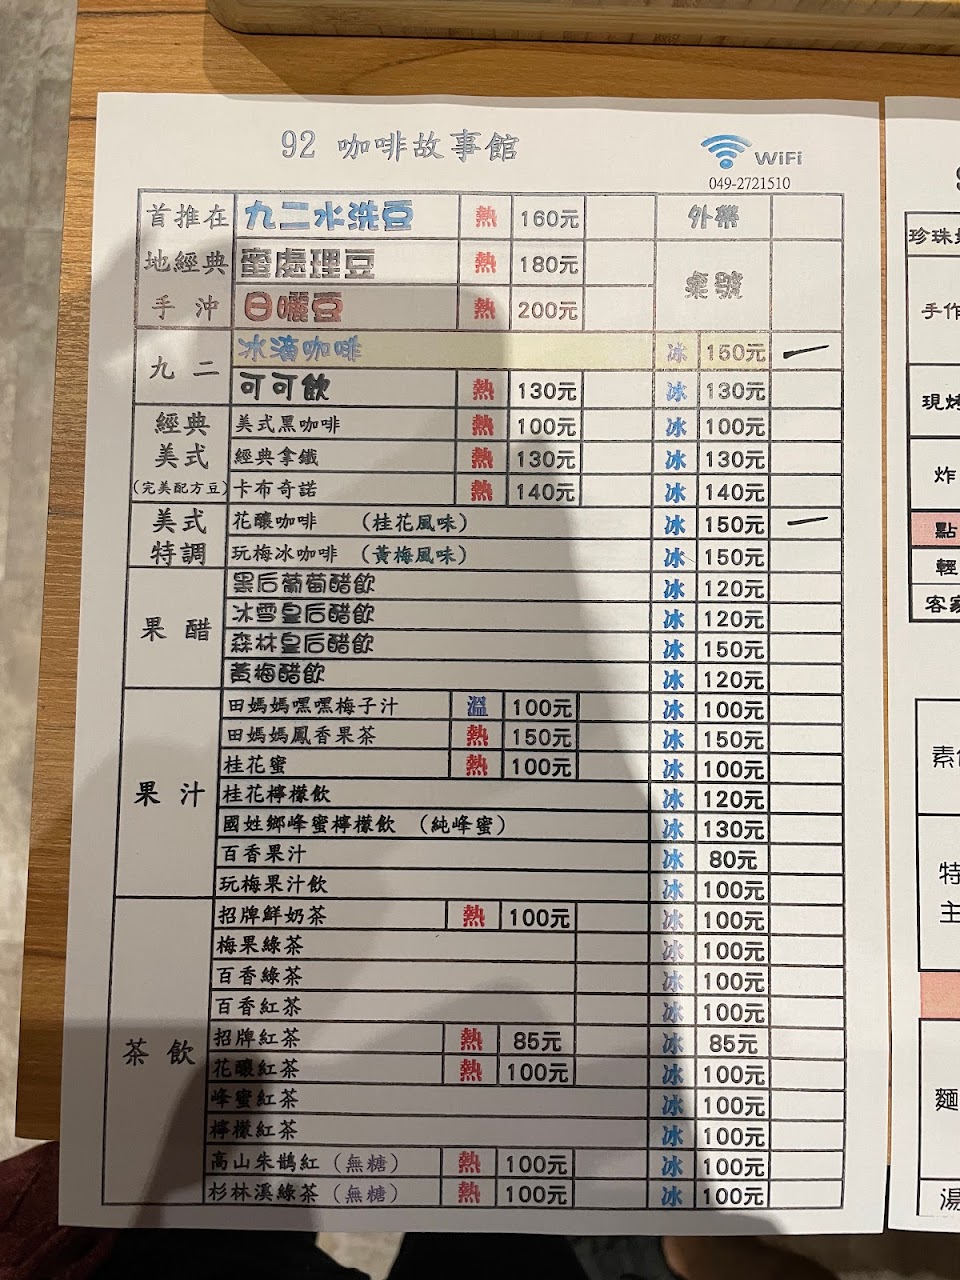 92 咖啡故事館
WiFi
049-2721510
首推在 九二水洗豆 熱 160元 外帶
地經典 蜜處理豆 熱 180元 桌號
手 沖 日曬豆 熱 200元
九 二 冰滴咖啡 冰 150元
可可飲 熱 130元 冰 130元
經典 美式黑咖啡 熱 100元 冰 100元
美式 經典拿鐵 熱 130元 冰 130元
(完美配方豆) 卡布奇諾 熱 140元 冰 140元
美式 花釀咖啡 (桂花風味) 冰 150元
特調 玩梅冰咖啡 (黃梅風味) 冰 150元
果 醋 黑后葡萄醋飲 冰 120元
冰雪皇后醋飲 冰 120元
森林皇后醋飲 冰 150元
黃梅醋飲 冰 120元
果 汁 田媽媽嘿嘿梅子汁 溫 100元 冰 100元
田媽媽鳳香果茶 熱 150元 冰 150元
桂花蜜 熱 100元 冰 100元
桂花檸檬飲 冰 120元
國姓鄉峰蜜檸檬飲 (純峰蜜) 冰 130元
百香果汁 冰 80元
玩梅果汁飲 冰 100元
茶 飲 招牌鮮奶茶 熱 100元 冰 100元
梅果綠茶 冰 100元
百香綠茶 冰 100元
百香紅茶 冰 100元
招牌紅茶 熱 85元 冰 85元
花釀紅茶 熱 100元 冰 100元
峰蜜紅茶 冰 100元
檸檬紅茶 冰 100元
高山朱鵲紅 (無糖) 熱 100元 冰 100元
杉林溪綠茶 (無糖) 熱 100元 冰 100元
珍珠
手作
現烤
炸
點
輕
客家
素
特
主
麵
湯